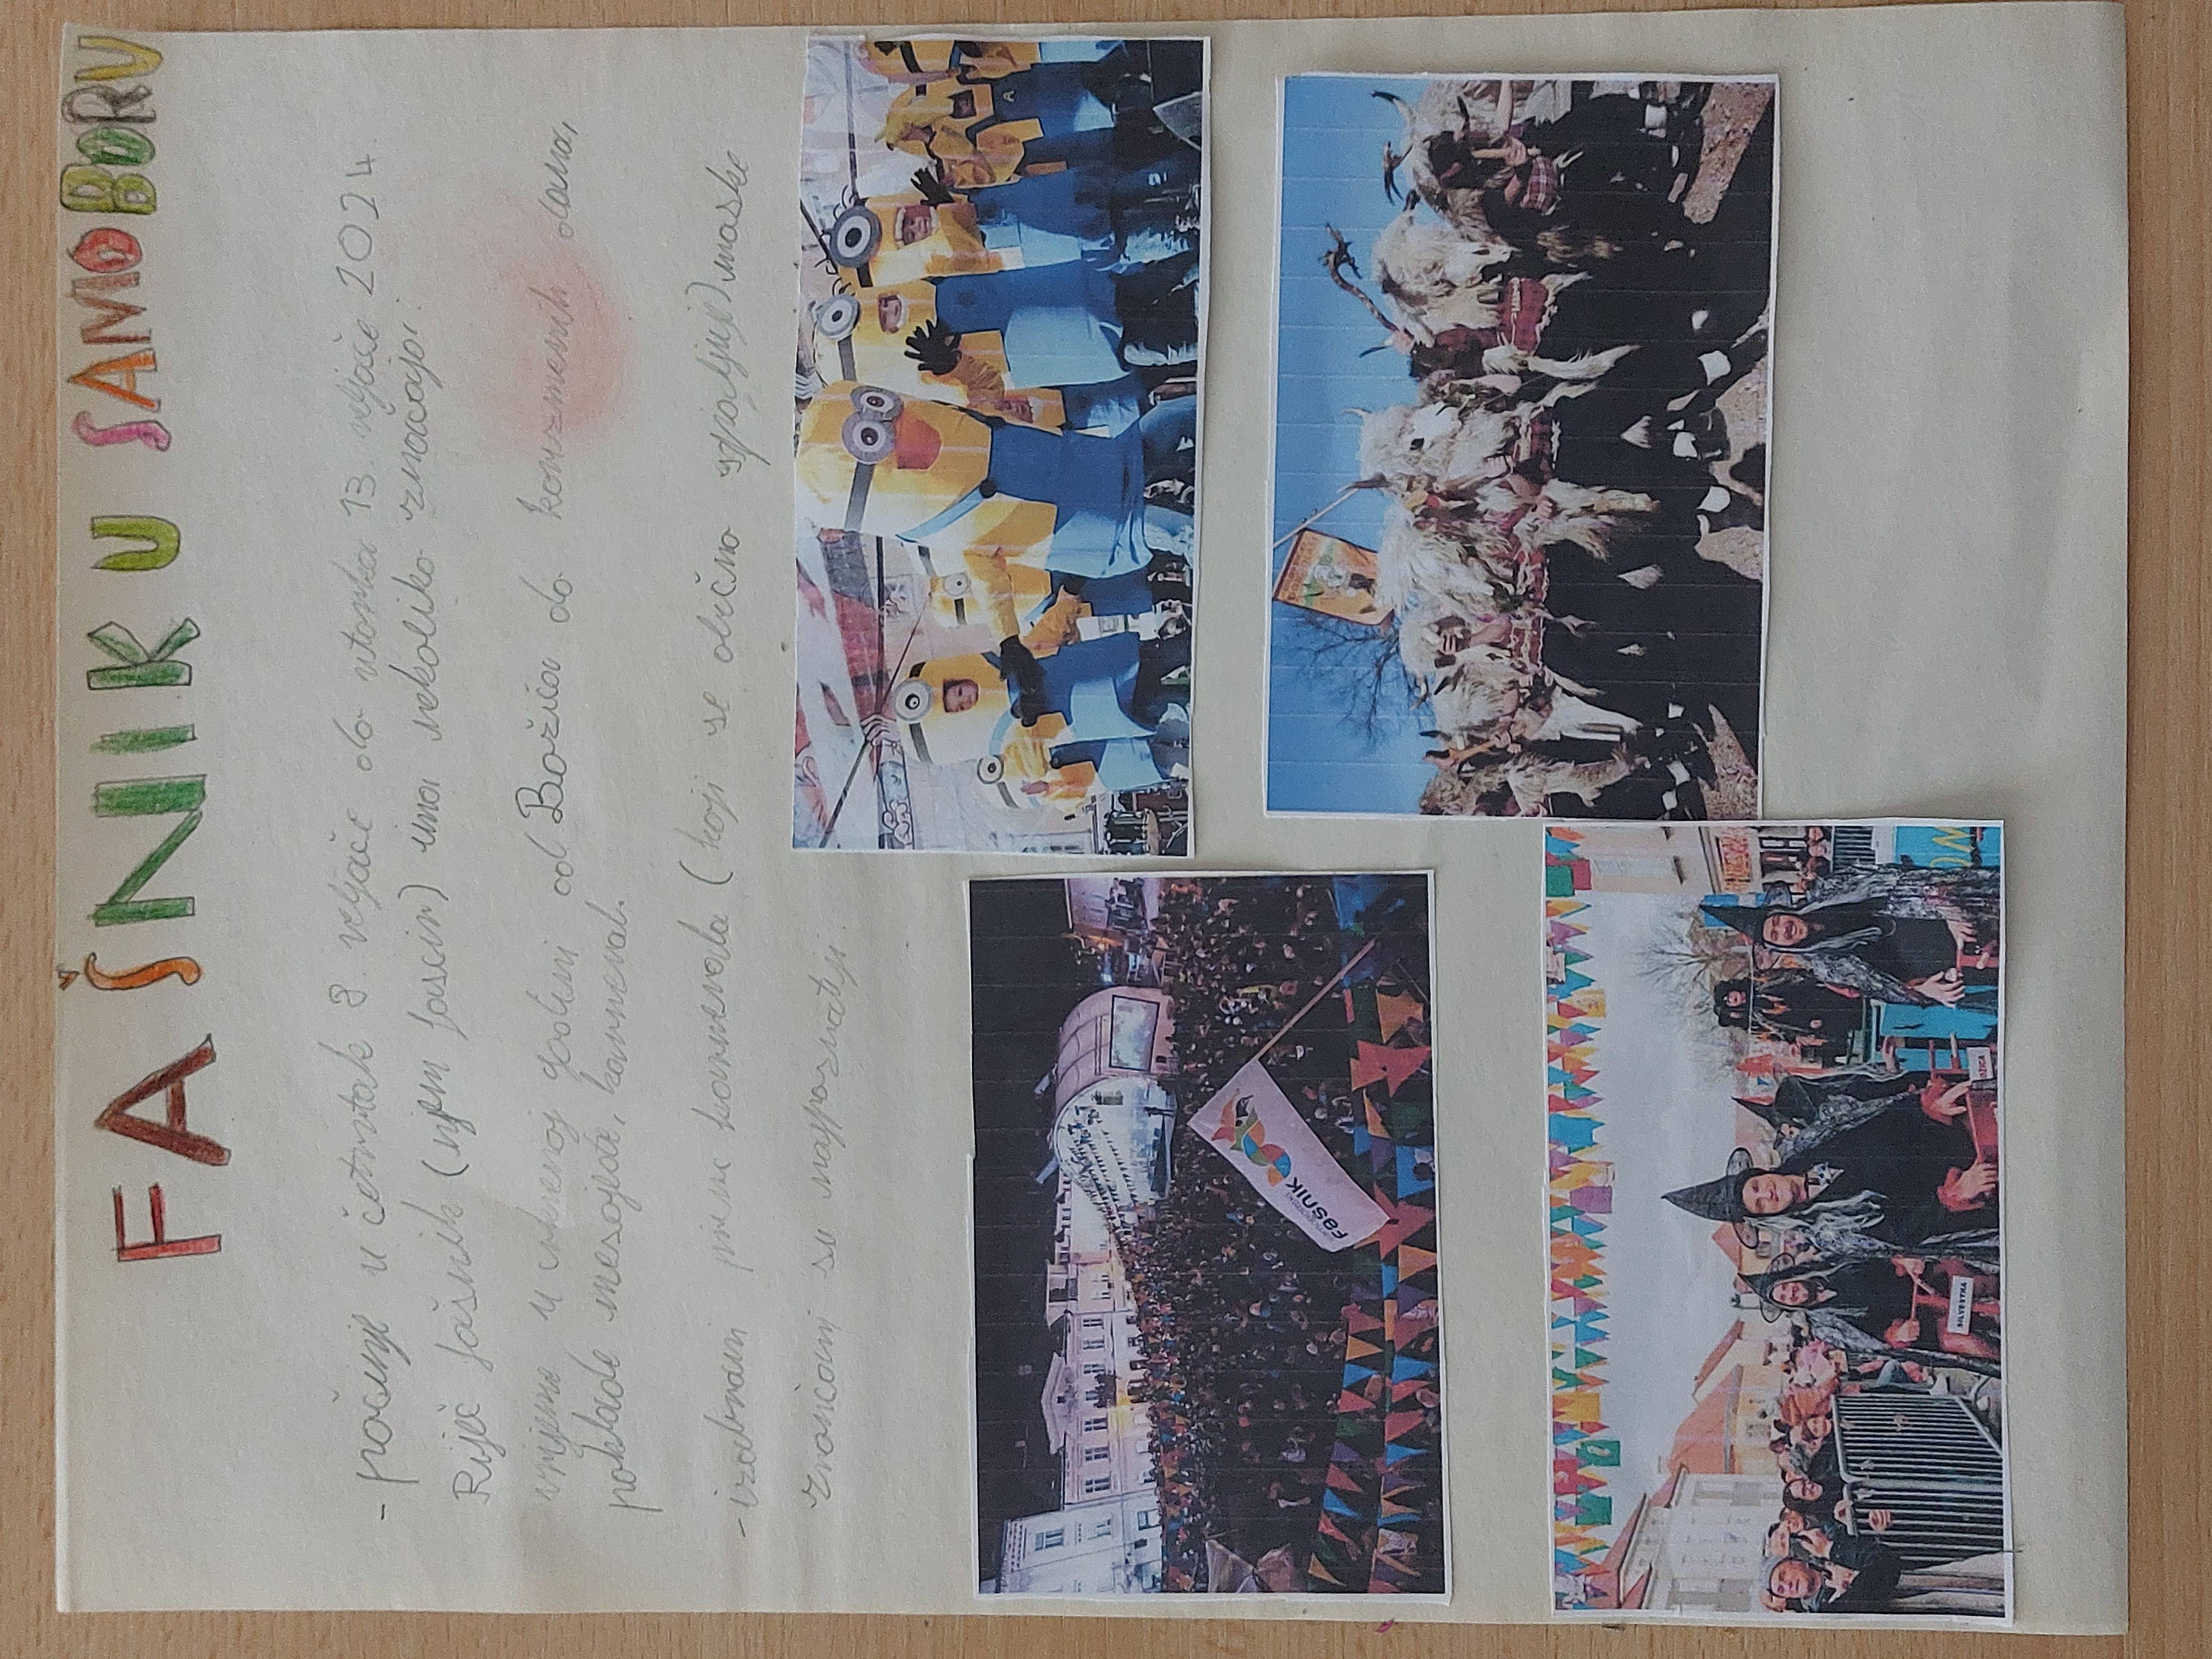 FAŠNIK U SAMOBORU
- počinje u četvrtak 8. veljače do utorka 13. veljače 2024.
Riječ fašnik (njem fascin) ima nekoliko značaja:
vrijeme u crkvenoj godini od Božića do korizmenih dana,
poklade mesojeđe, karneval.
- izvornom ime karnevala (koji se obično spaljuje) maske
značajni su najpoznatiji.
fašnik
SILVESTRA